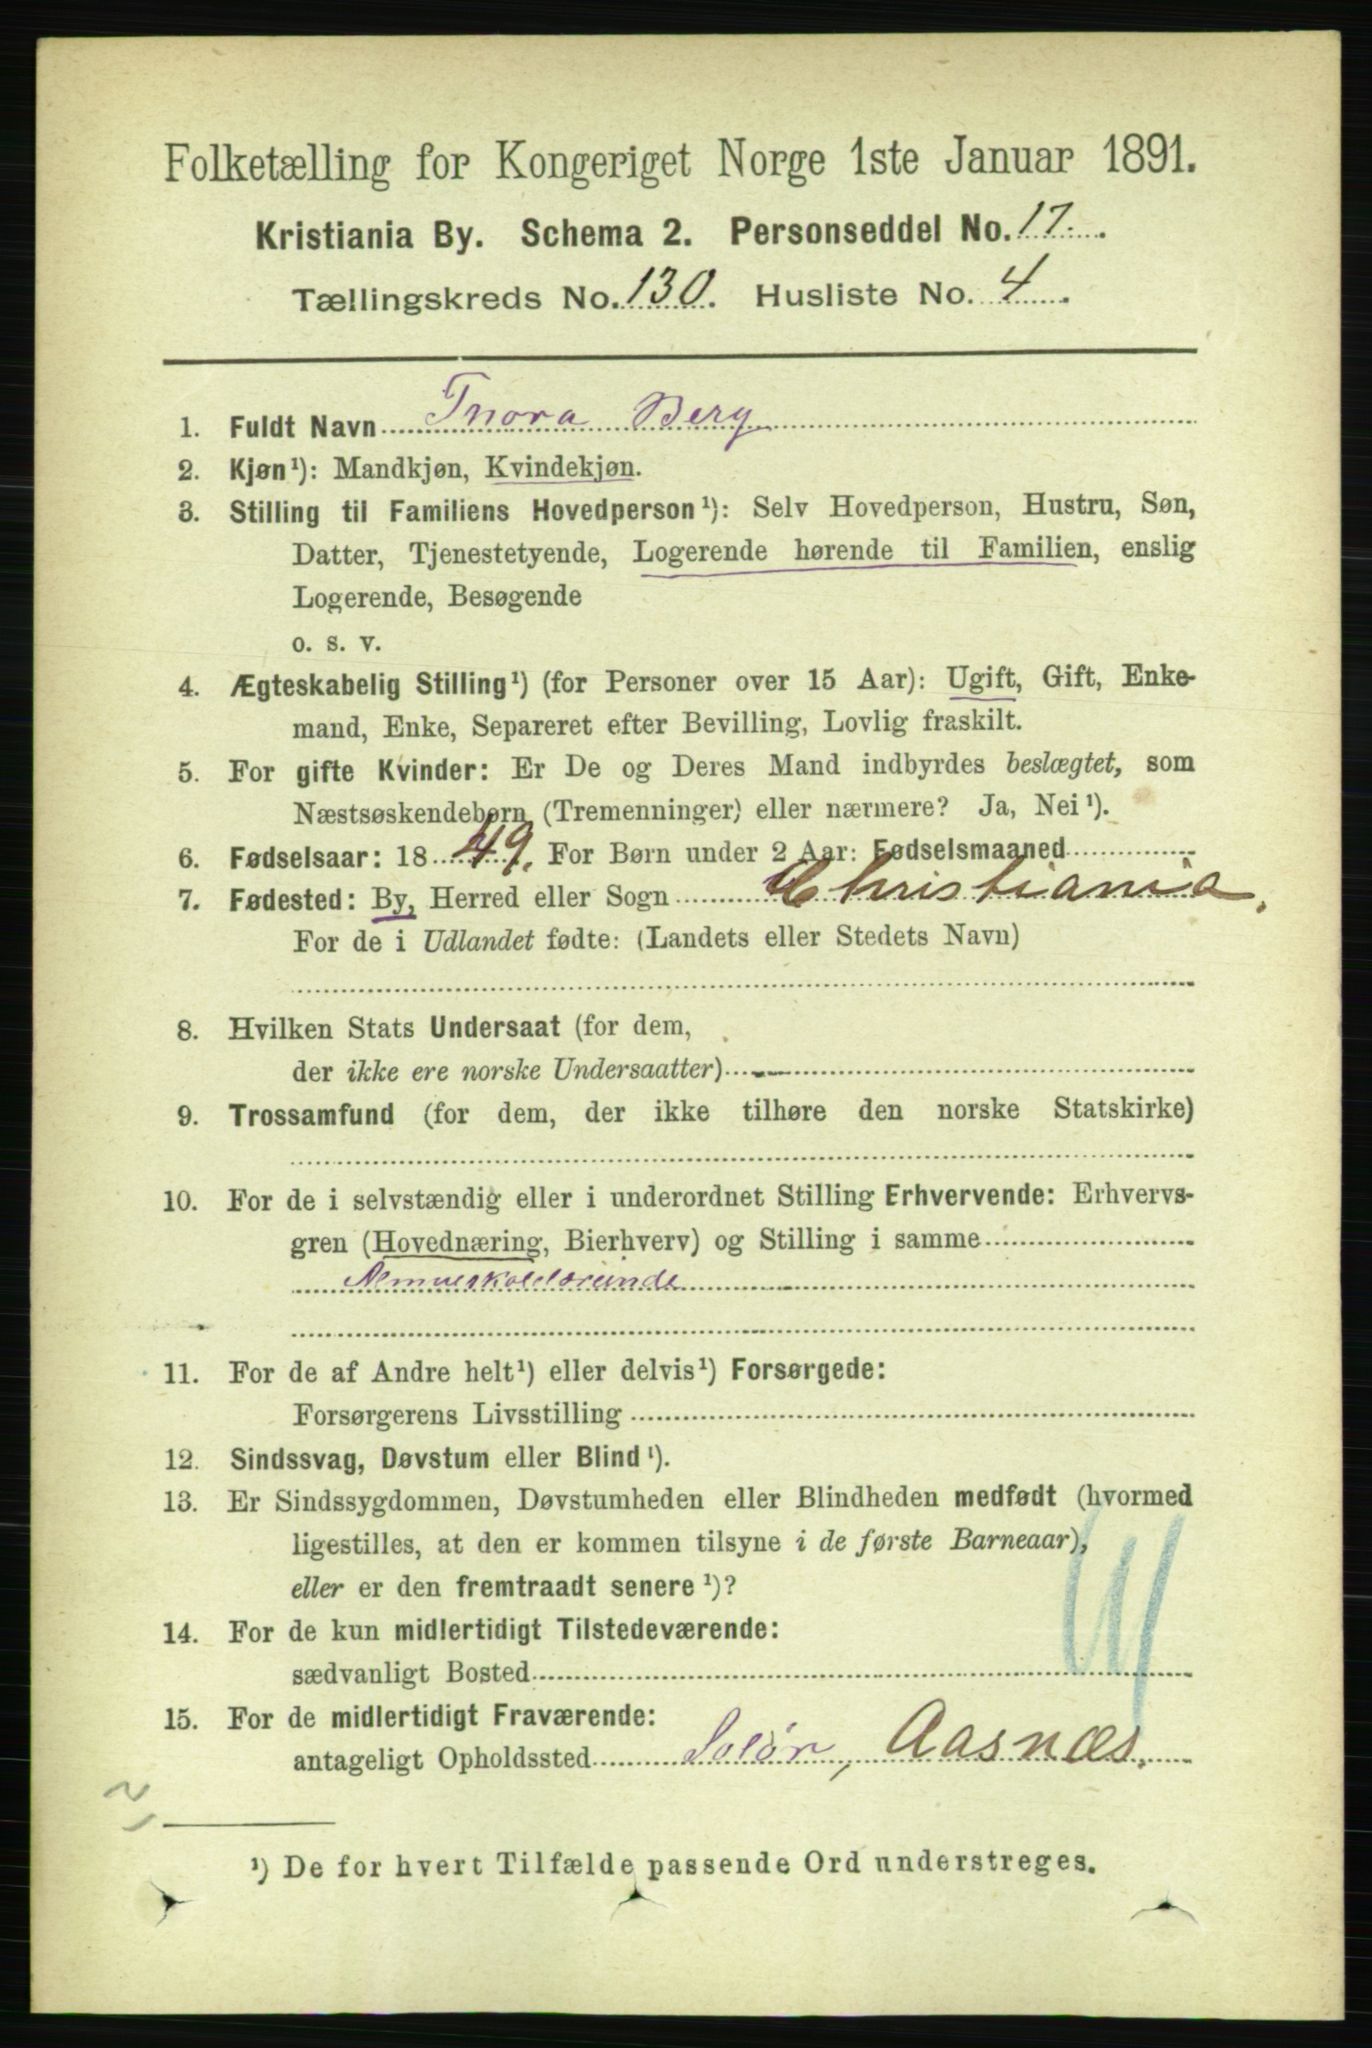 Folketælling for Kongeriget Norge 1ste Januar 1891.
Kristiania By. Schema 2. Personseddel No. 17.
Tællingskreds No. 130. Husliste No. 4.
1. Fuldt Navn Thora Berg
2. Kjøn¹): Mandkjøn, Kvindekjøn.
3. Stilling til Familiens Hovedperson¹): Selv Hovedperson, Hustru, Søn,
Datter, Tjenestetyende, Logerende hørende til Familien, enslig
Logerende, Besøgende
o. s. v.
4. Ægteskabelig Stilling¹) (for Personer over 15 Aar): Ugift, Gift, Enke-
mand, Enke, Separeret efter Bevilling, Lovlig fraskilt.
5. For gifte Kvinder: Er De og Deres Mand indbyrdes beslægtet, som
Næstsøskendebørn (Tremenninger) eller nærmere? Ja, Nei¹).
6. Fødselsaar: 1849. For Børn under 2 Aar: Fødselsmaaned
7. Fødested: By, Herred eller Sogn Christiania.
For de i Udlandet fødte: (Landets eller Stedets Navn)
8. Hvilken Stats Undersaat (for dem,
der ikke ere norske Undersaatter)
9. Trossamfund (for dem, der ikke tilhøre den norske Statskirke)
10. For de i selvstændig eller i underordnet Stilling Erhvervende: Erhvervs-
gren (Hovednæring, Bierhverv) og Stilling i samme
Almueskolelærerinde
11. For de af Andre helt¹) eller delvis¹) Forsørgede:
Forsørgerens Livsstilling
12. Sindssvag, Døvstum eller Blind¹).
13. Er Sindssygdommen, Døvstumheden eller Blindheden medfødt (hvormed
ligestilles, at den er kommen tilsyne i de første Barneaar),
eller er den fremtraadt senere¹)?
14. For de kun midlertidigt Tilstedeværende:
sædvanligt Bosted
15. For de midlertidigt Fraværende:
antageligt Opholdssted Solør, Aasnæs.
¹) De for hvert Tilfælde passende Ord understreges.